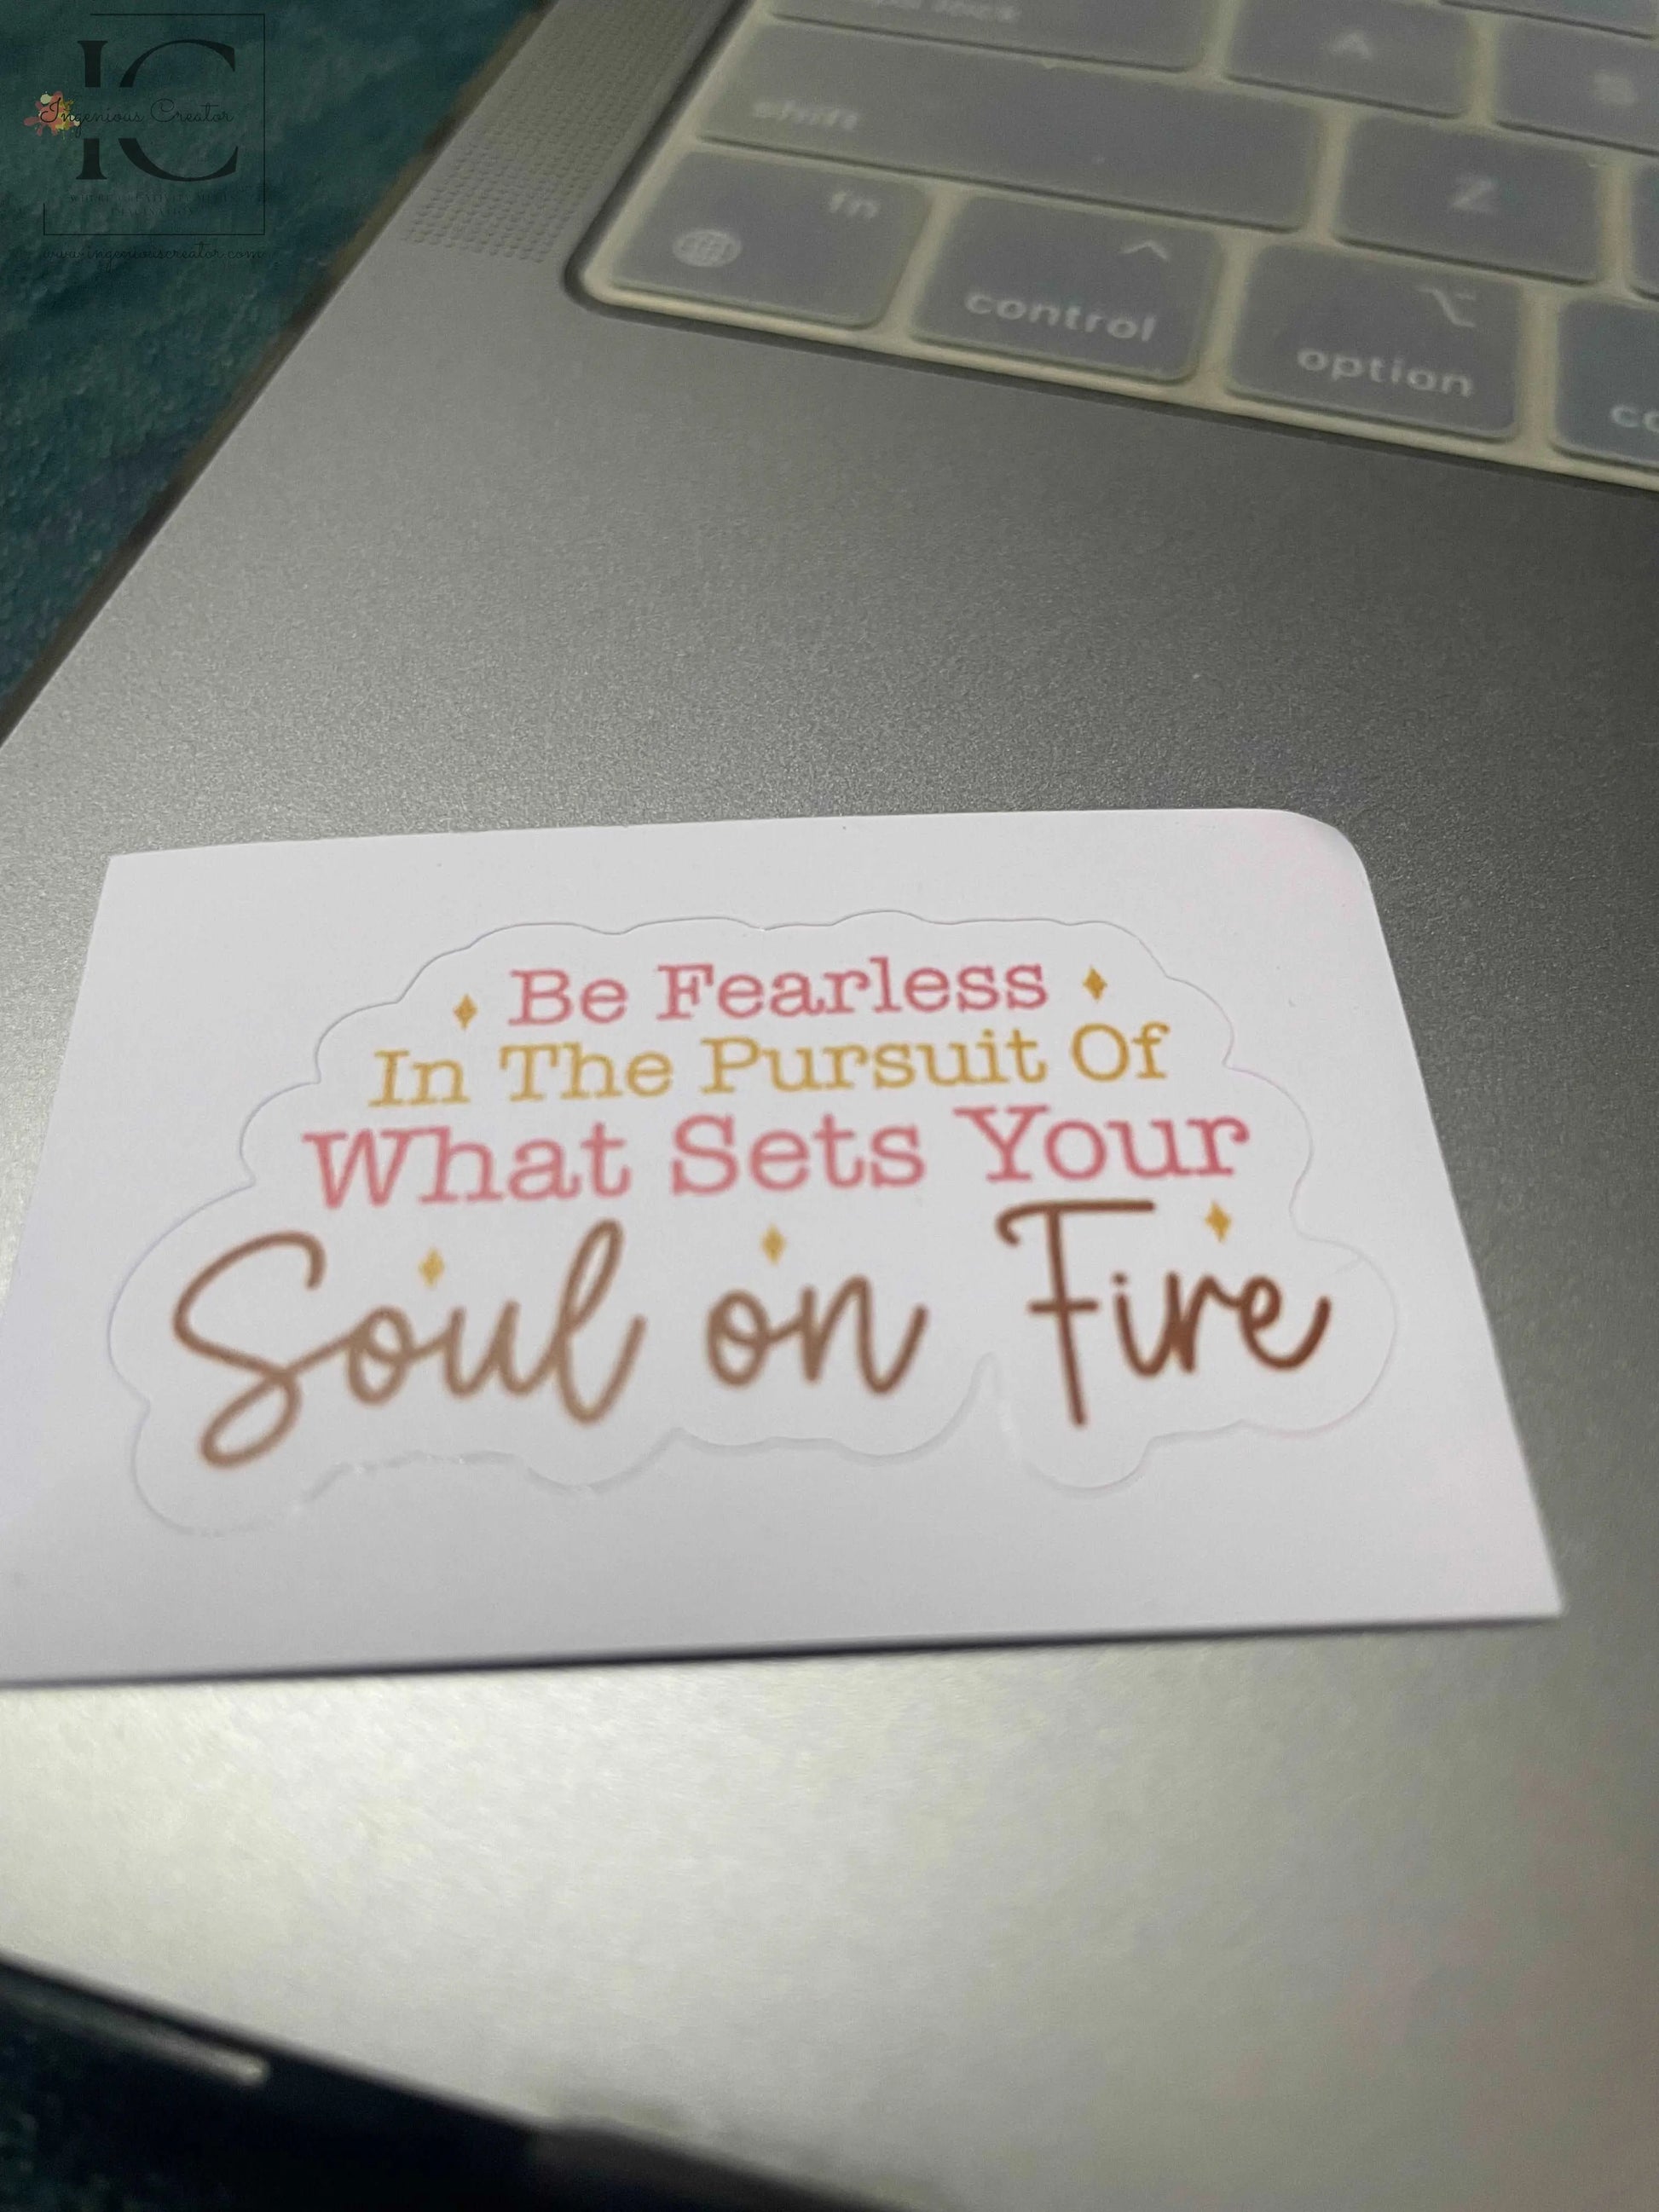 IC
Ingenious Creator
www.ingeniouscreator.com
A
shift
Z
fn
control
option
Be Fearless
In The Pursuit Of
What Sets Your
Soul on Fire